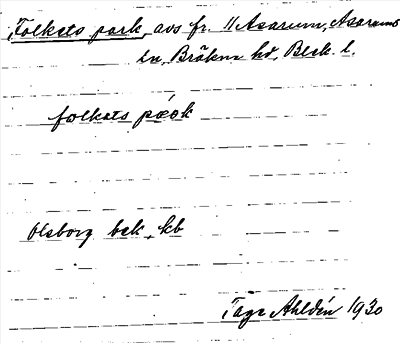 Folkets park, avs fr. 11 Asarum, Asarums
sn, Bräkne hd, Blek. l.
folkets pæ̀ok
Olsborg bek, kb
Tage Ahldén 1930